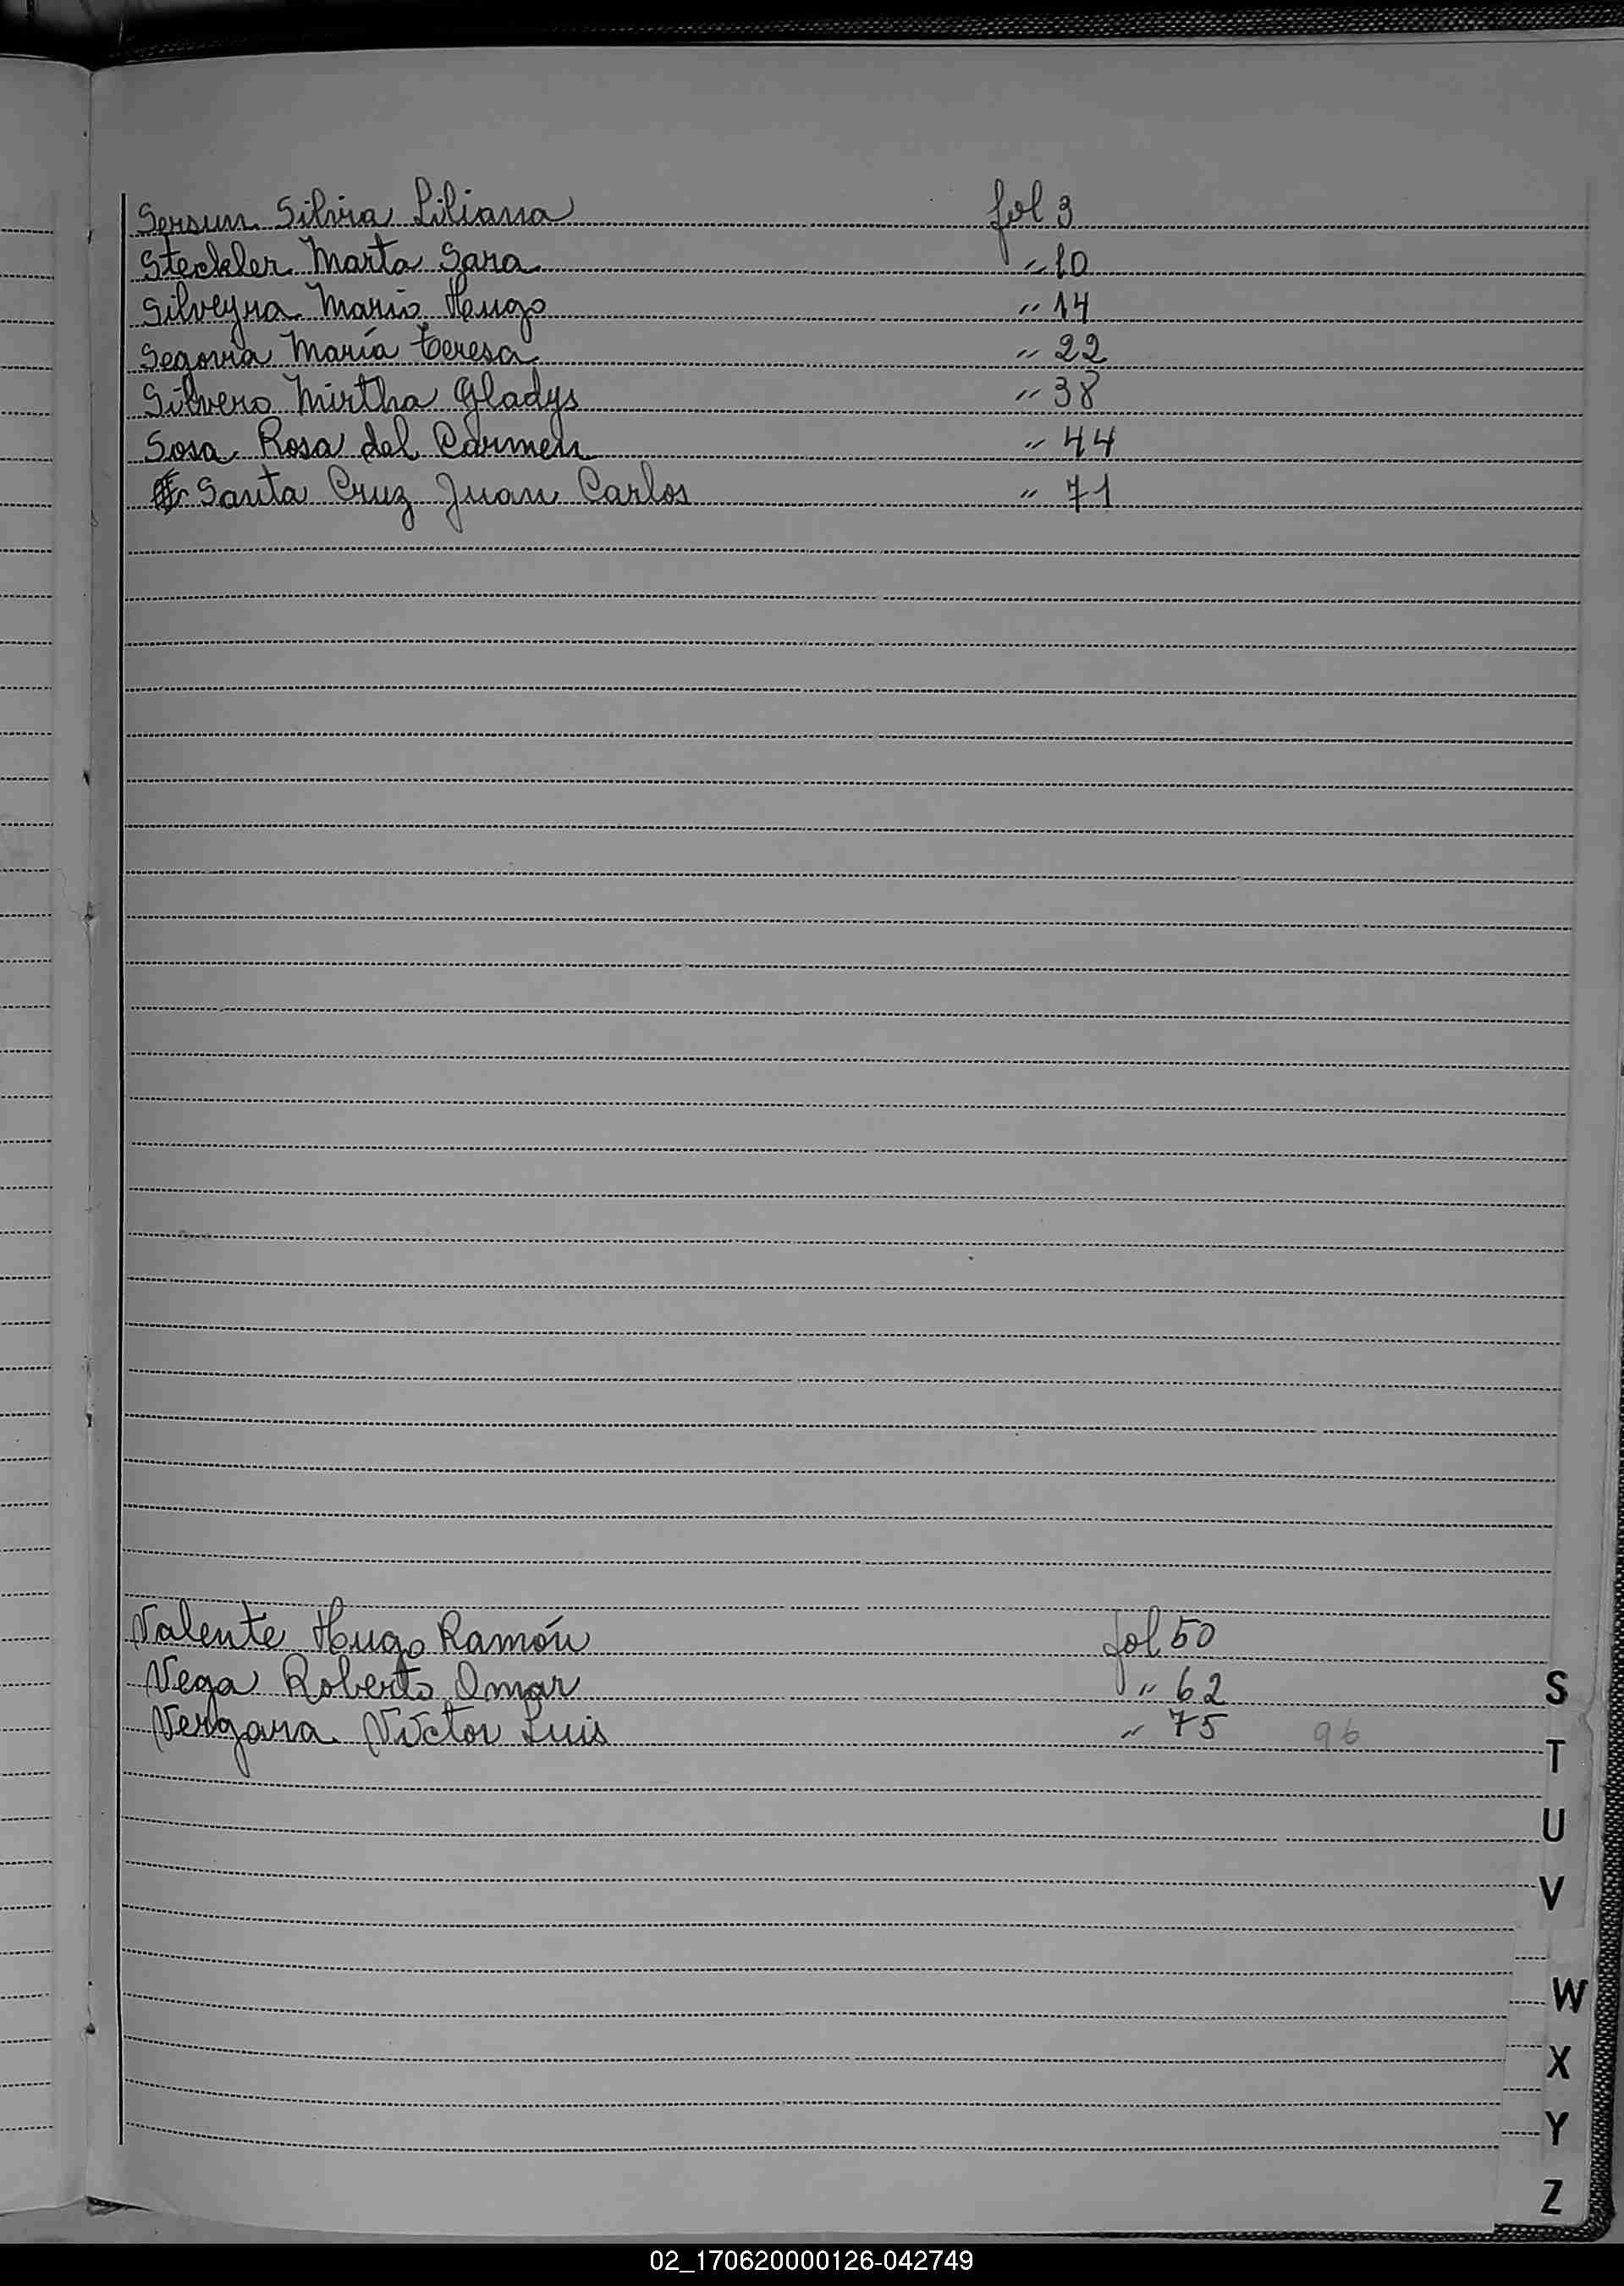 Sersun Silvia Liliana fol 3
Steckler Marta Sara " 10
Silveyra Mario Hugo " 14
Segovia María Teresa " 22
Silvero Mirtha Gladys " 38
Sosa Rosa del Carmen " 44
Santa Cruz Juan Carlos " 71
Valente Hugo Ramón fol 50
Vega Roberto Omar " 62
Vergara Víctor Luis " 75 96
S
T
U
V
W
X
Y
Z
02_170620000126-042749